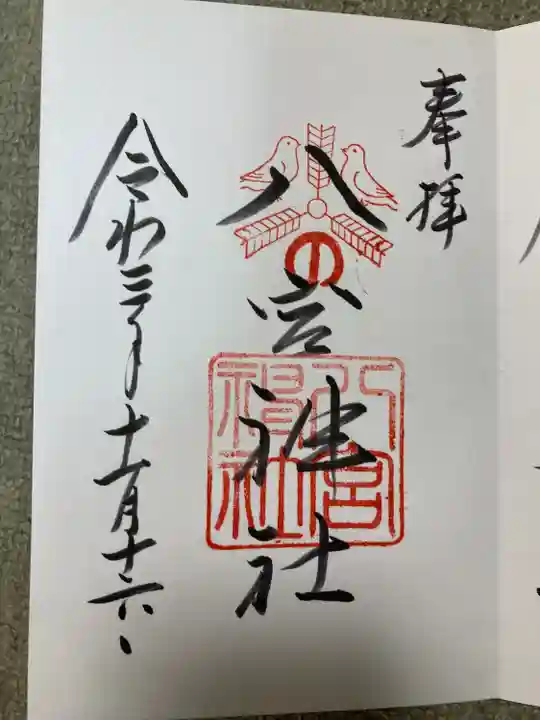 奉拝
八の宮神社
八宮神社
令和三年十一月十六日